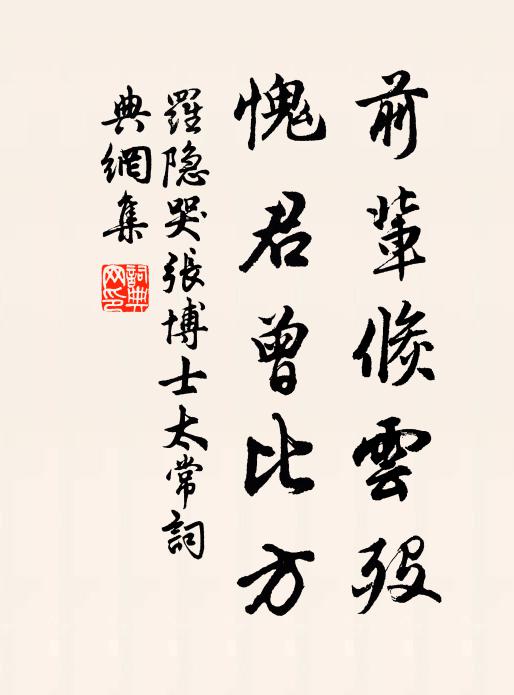 前輩倐雲歿
愧君曾比方
羅隐哭張博士太常詞
典網集
詞典网印